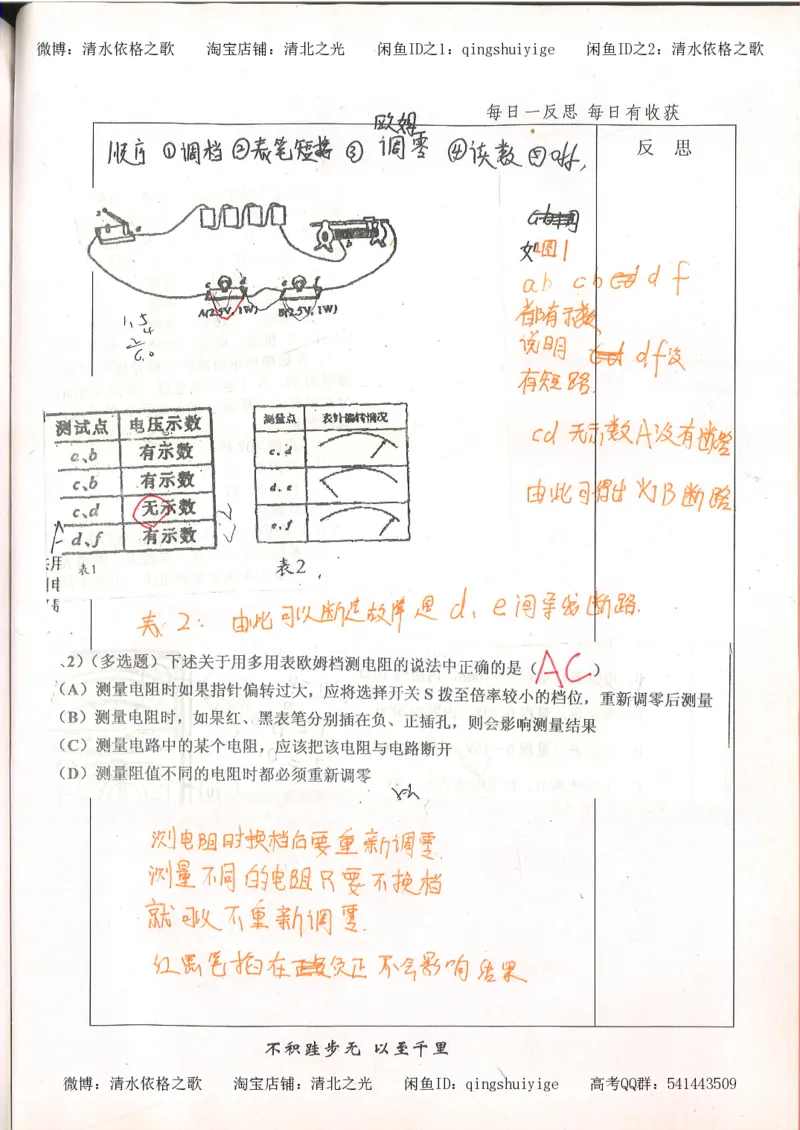 微博：清水依格之歌 淘宝店铺：清北之光 闲鱼ID之1：qingshuiyige 闲鱼ID之2：清水依格之歌
每日一反思 每日有收获
欧姆
顺序 ①调档 ②表笔短接 ③ 调零 ④读数 ⑤off,
反 思
如图1
ab cb d f
都有示数
说明 df没
有短路.
cd 无示数A没有断路
由此可得出 B断路
A(2.5V,1W) B(2.5V,1W)
测试点 电压示数
a、b 有示数
c、b 有示数
c、d 无示数
d、f 有示数
表1
测量点 表针偏转情况
c、d
d、e
e、f
表2
表2： 由此可以断定故障是d、e间 断路.
2）（多选题）下述关于用多用表欧姆档测电阻的说法中正确的是（ AC ）
（A）测量电阻时如果指针偏转过大，应将选择开关S拨至倍率较小的档位，重新调零后测量
（B）测量电阻时，如果红、黑表笔分别插在负、正插孔，则会影响测量结果
（C）测量电路中的某个电阻，应该把该电阻与电路断开
（D）测量阻值不同的电阻时都必须重新调零
测电阻时换档后要重新调零.
测量不同的电阻只要不换档
就可以不重新调零.
红黑笔插在负正不会影响结果
不积跬步无 以至千里
微博：清水依格之歌 淘宝店铺：清北之光 闲鱼ID：qingshuiyige 高考QQ群：541443509